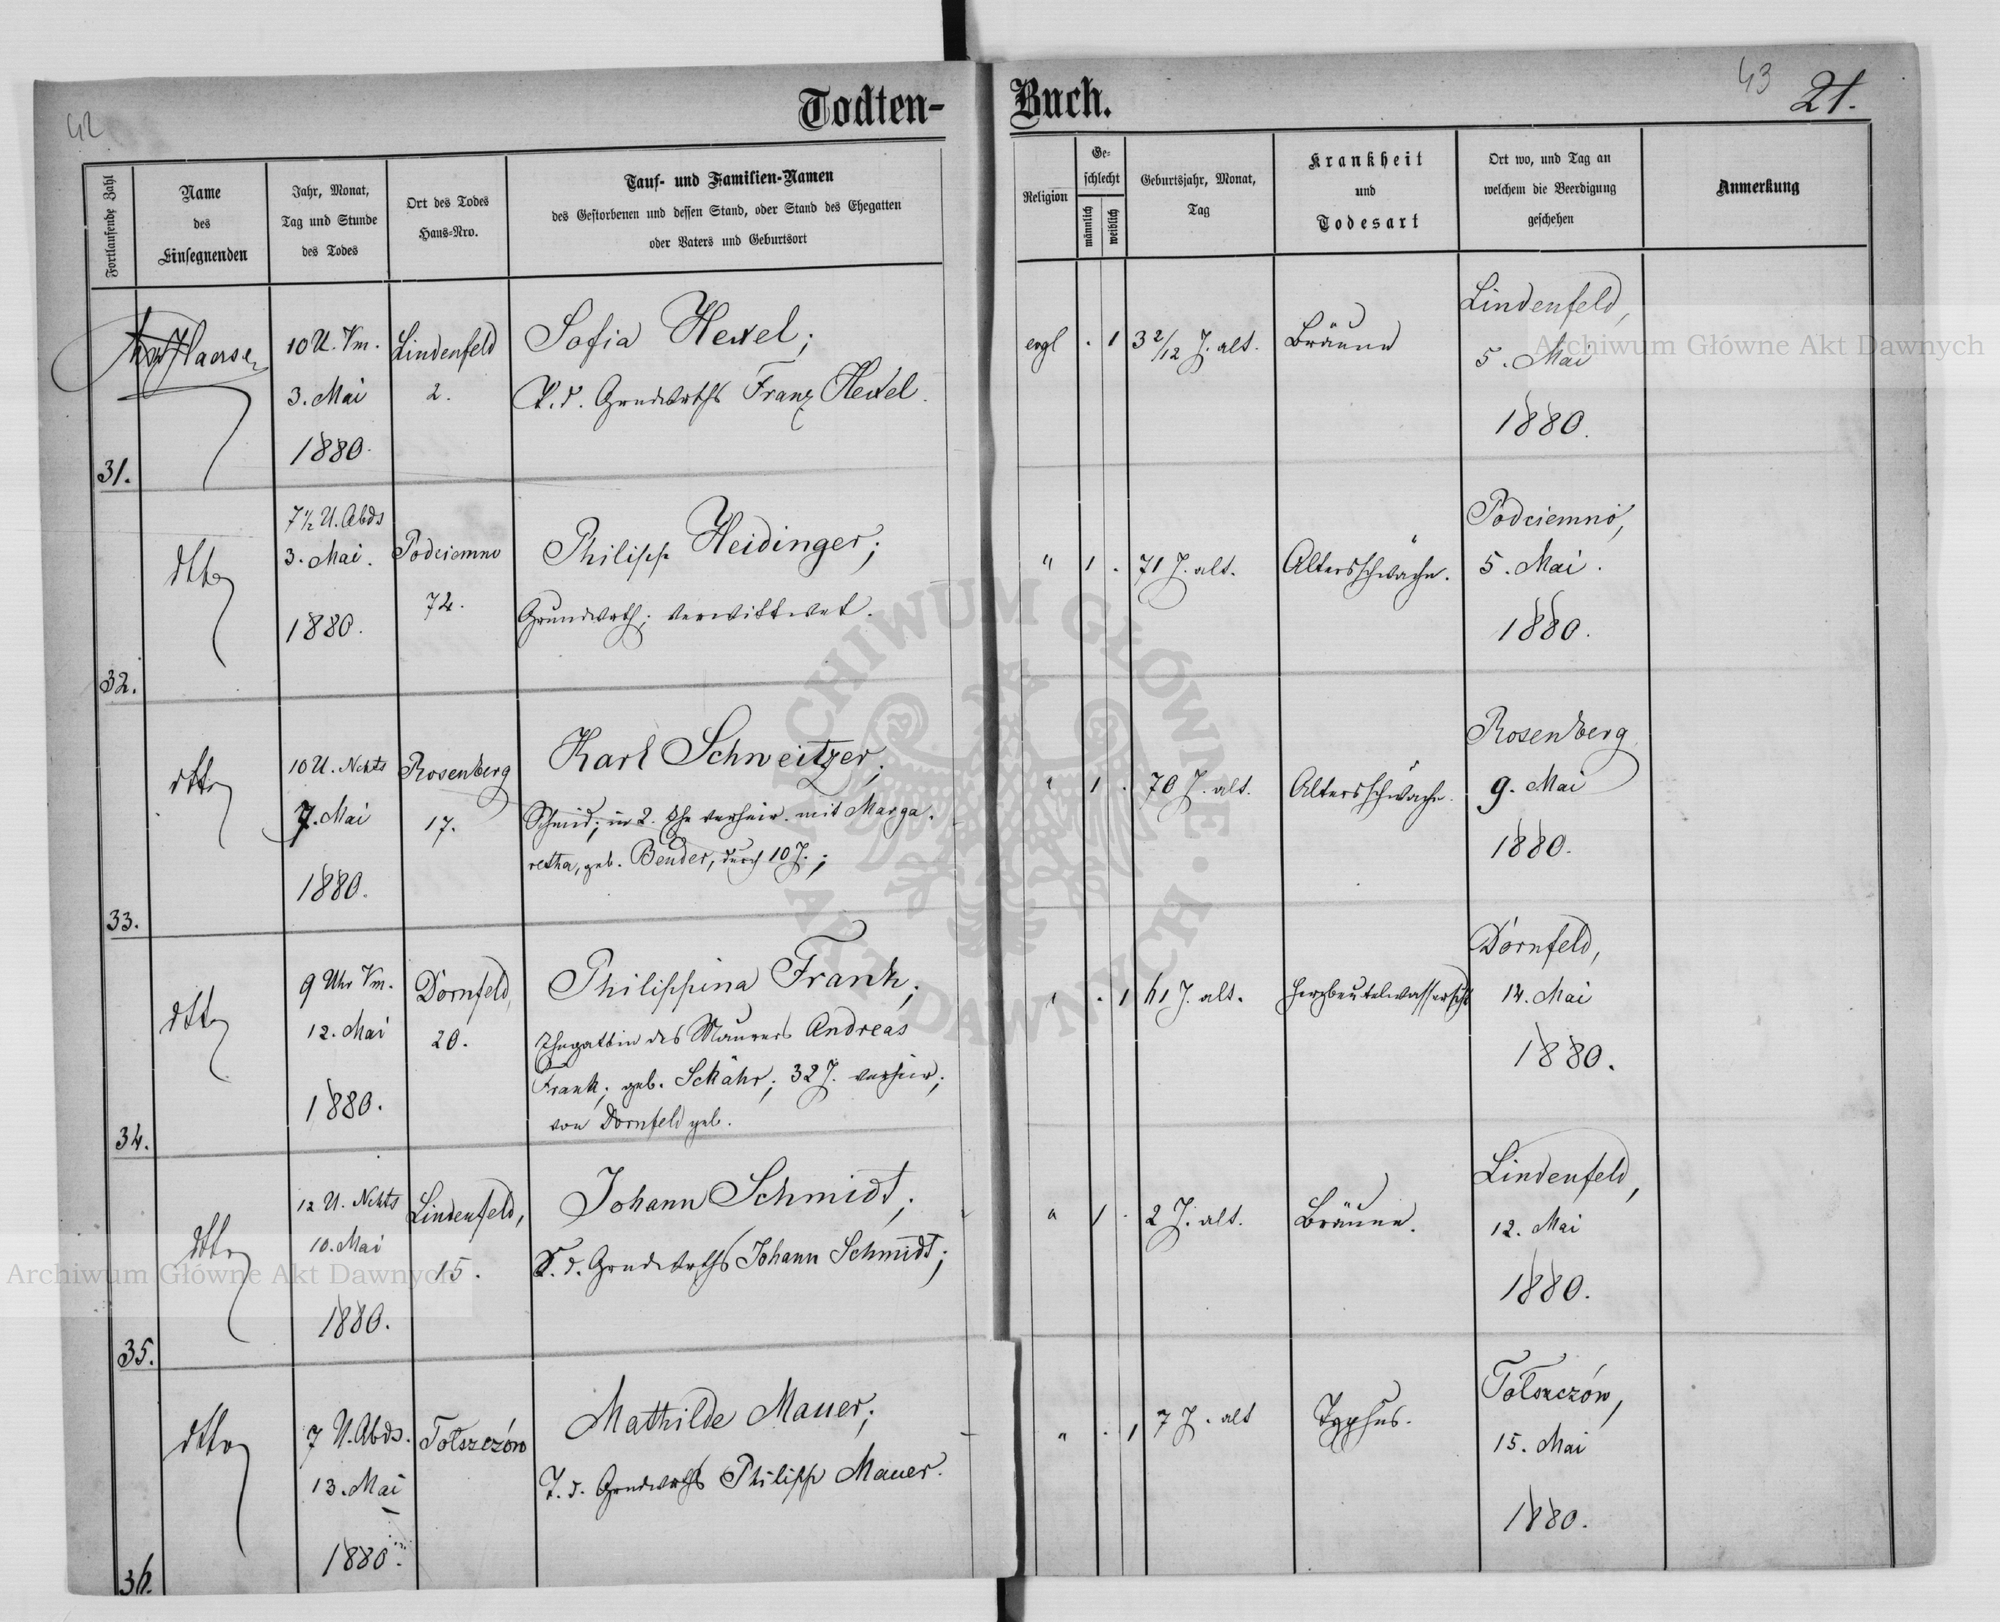 42
Todten-
Buch.
43
21.
Fortlaufende Zahl
Name
des
Einsegnenden
Jahr, Monat,
Tag und Stunde
des Todes
Ort des Todes
Haus-Nro.
Tauf- und Familien-Namen
des Gestorbenen und dessen Stand, oder Stand des Ehegatten
oder Vaters und Geburtsort
Religion
Ge-
schlecht
männlich
weiblich
Geburtsjahr, Monat,
Tag
Krankheit
und
Todesart
Ort wo, und Tag an
welchem die Beerdigung
geschehen
Anmerkung
31.
10 U. Vm.
3. Mai
1880.
Lindenfeld
2.
Sofia Hexel;
T. d. Grndwrths Franz Hexel.
evgl
. 1
3 2/12 J. alt.
Bräune
Lindenfeld,
5. Mai
1880.
32.
dtto
7 1/2 U. Abds
3. Mai.
1880.
Podciemno
72.
Philipp Heidinger;
Grundwrth; verwittwet.
"
1 .
71 J. alt.
Altersschwäche.
Podciemno,
5. Mai.
1880.
33.
dtto
10 U. Nchts
7. Mai
1880.
Rosenberg
17.
Karl Schweitzer;
Schmid; in 2. Ehe verheir. mit Marga-
retha, geb. Bender, durch 10 J.;
"
1 .
70 J. alt.
Altersschwäche.
Rosenberg
9. Mai
1880.
34.
dtto
9 Uhr Vm.
12. Mai
1880.
Dornfeld,
20.
Philippina Frank;
Ehegattin des Maurers Andreas
Frank; geb. Schähr; 32 J. verheir;
von Dornfeld geb.
"
. 1
61 J. alt.
Herzbeutelwassersucht
Dornfeld,
14. Mai
1880.
35.
dtto
12 U. Nchts
10. Mai
1880.
Lindenfeld,
15.
Johann Schmidt;
S. d. Grndwrths Johann Schmidt;
"
1 .
2 J. alt.
Bräune.
Lindenfeld,
12. Mai
1880.
36.
dtto
7 U. Abds.
13. Mai
1880.
Tołszczów
Mathilde Mauer;
T. d. Grndwrths Philipp Mauer.
"
. 1
7 J. alt
Typhus.
Tołszczów,
15. Mai
1880.
Archiwum Główne Akt Dawnych
Archiwum Główne Akt Dawnych
ARCHIWUM GŁÓWNE
AKT DAWNYCH